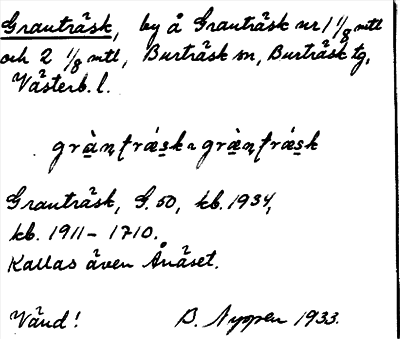 Granträsk, by å Granträsk nr 1 1/8 mtl
och 2 1/8 mtl, Burträsk sn, Burträsk tg,
Västerb. l.
Granträsk, G. 50, kb. 1934,
kb. 1911 – 1710.
Kallas även Ånäset.
Vänd! B. Nyssen 1933.